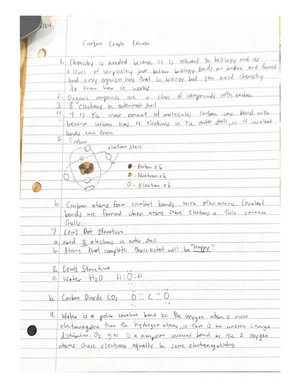 Carbon Crash Course
1. Chemistry is needed because it is relevant to biology and is
a level of complexity just below biology. Bonds are broken and formed
and every organism that is biology but you need chemistry
to know how it works.
2. Organic compounds are a class of compounds with carbon
3. 8 electrons in outermost shell
4. 4 is the max amount of molecules carbon can bond with
because carbon has 4 electrons in its outer shell, so 4 covalent
bonds can form
5. Carbon
electron shell
- Proton x 6
- Neutron x 6
- Electron x 6
6. Carbon atoms form covalent bonds with other atoms. Covalent
bonds are formed when atoms share electrons in their valence
shells.
7. Lewis Dot Structure
a. need 8 electrons in outer shell
b. Atoms that complete their octet will be "happy"
8. Lewis Structure
a. Water H2O H:O:H
b. Carbon Dioxide CO2 O::C::O
9. Water is a polar covalent bond bc the oxygen atom is more
electronegative than the hydrogen atoms, so there is an uneven charge
distribution. O2 gas is a nonpolar covalent bond bc the 2 oxygen
atoms share electrons equally bc same electronegativities